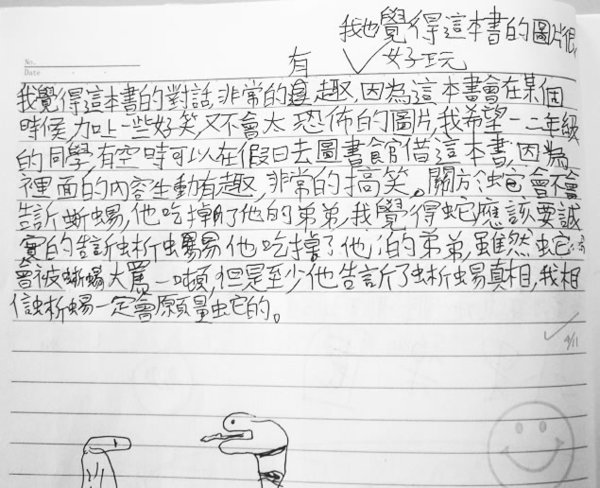 我也覺得這本書的圖片很
好玩
有
No.
Date
我覺得這本書的對話,非常的趣,因為這本書會在某個
時候加上一些好笑,又不會太恐怖的圖片,我希望一二年級
的同學,有空時可以在假日去圖書館借這本書,因為
裡面的內容生動有趣,非常的搞笑。關於蛇會不會
告訴蜥蜴,他吃掉了他的弟弟,我覺得蛇應該要誠
實的告訴蜥蜴他吃掉了他的弟弟,雖然蛇
會被蜥蜴大罵一頓,但是至少他告訴了蜥蜴真相,我相
信蜥蜴一定會原諒蛇的。
4/11